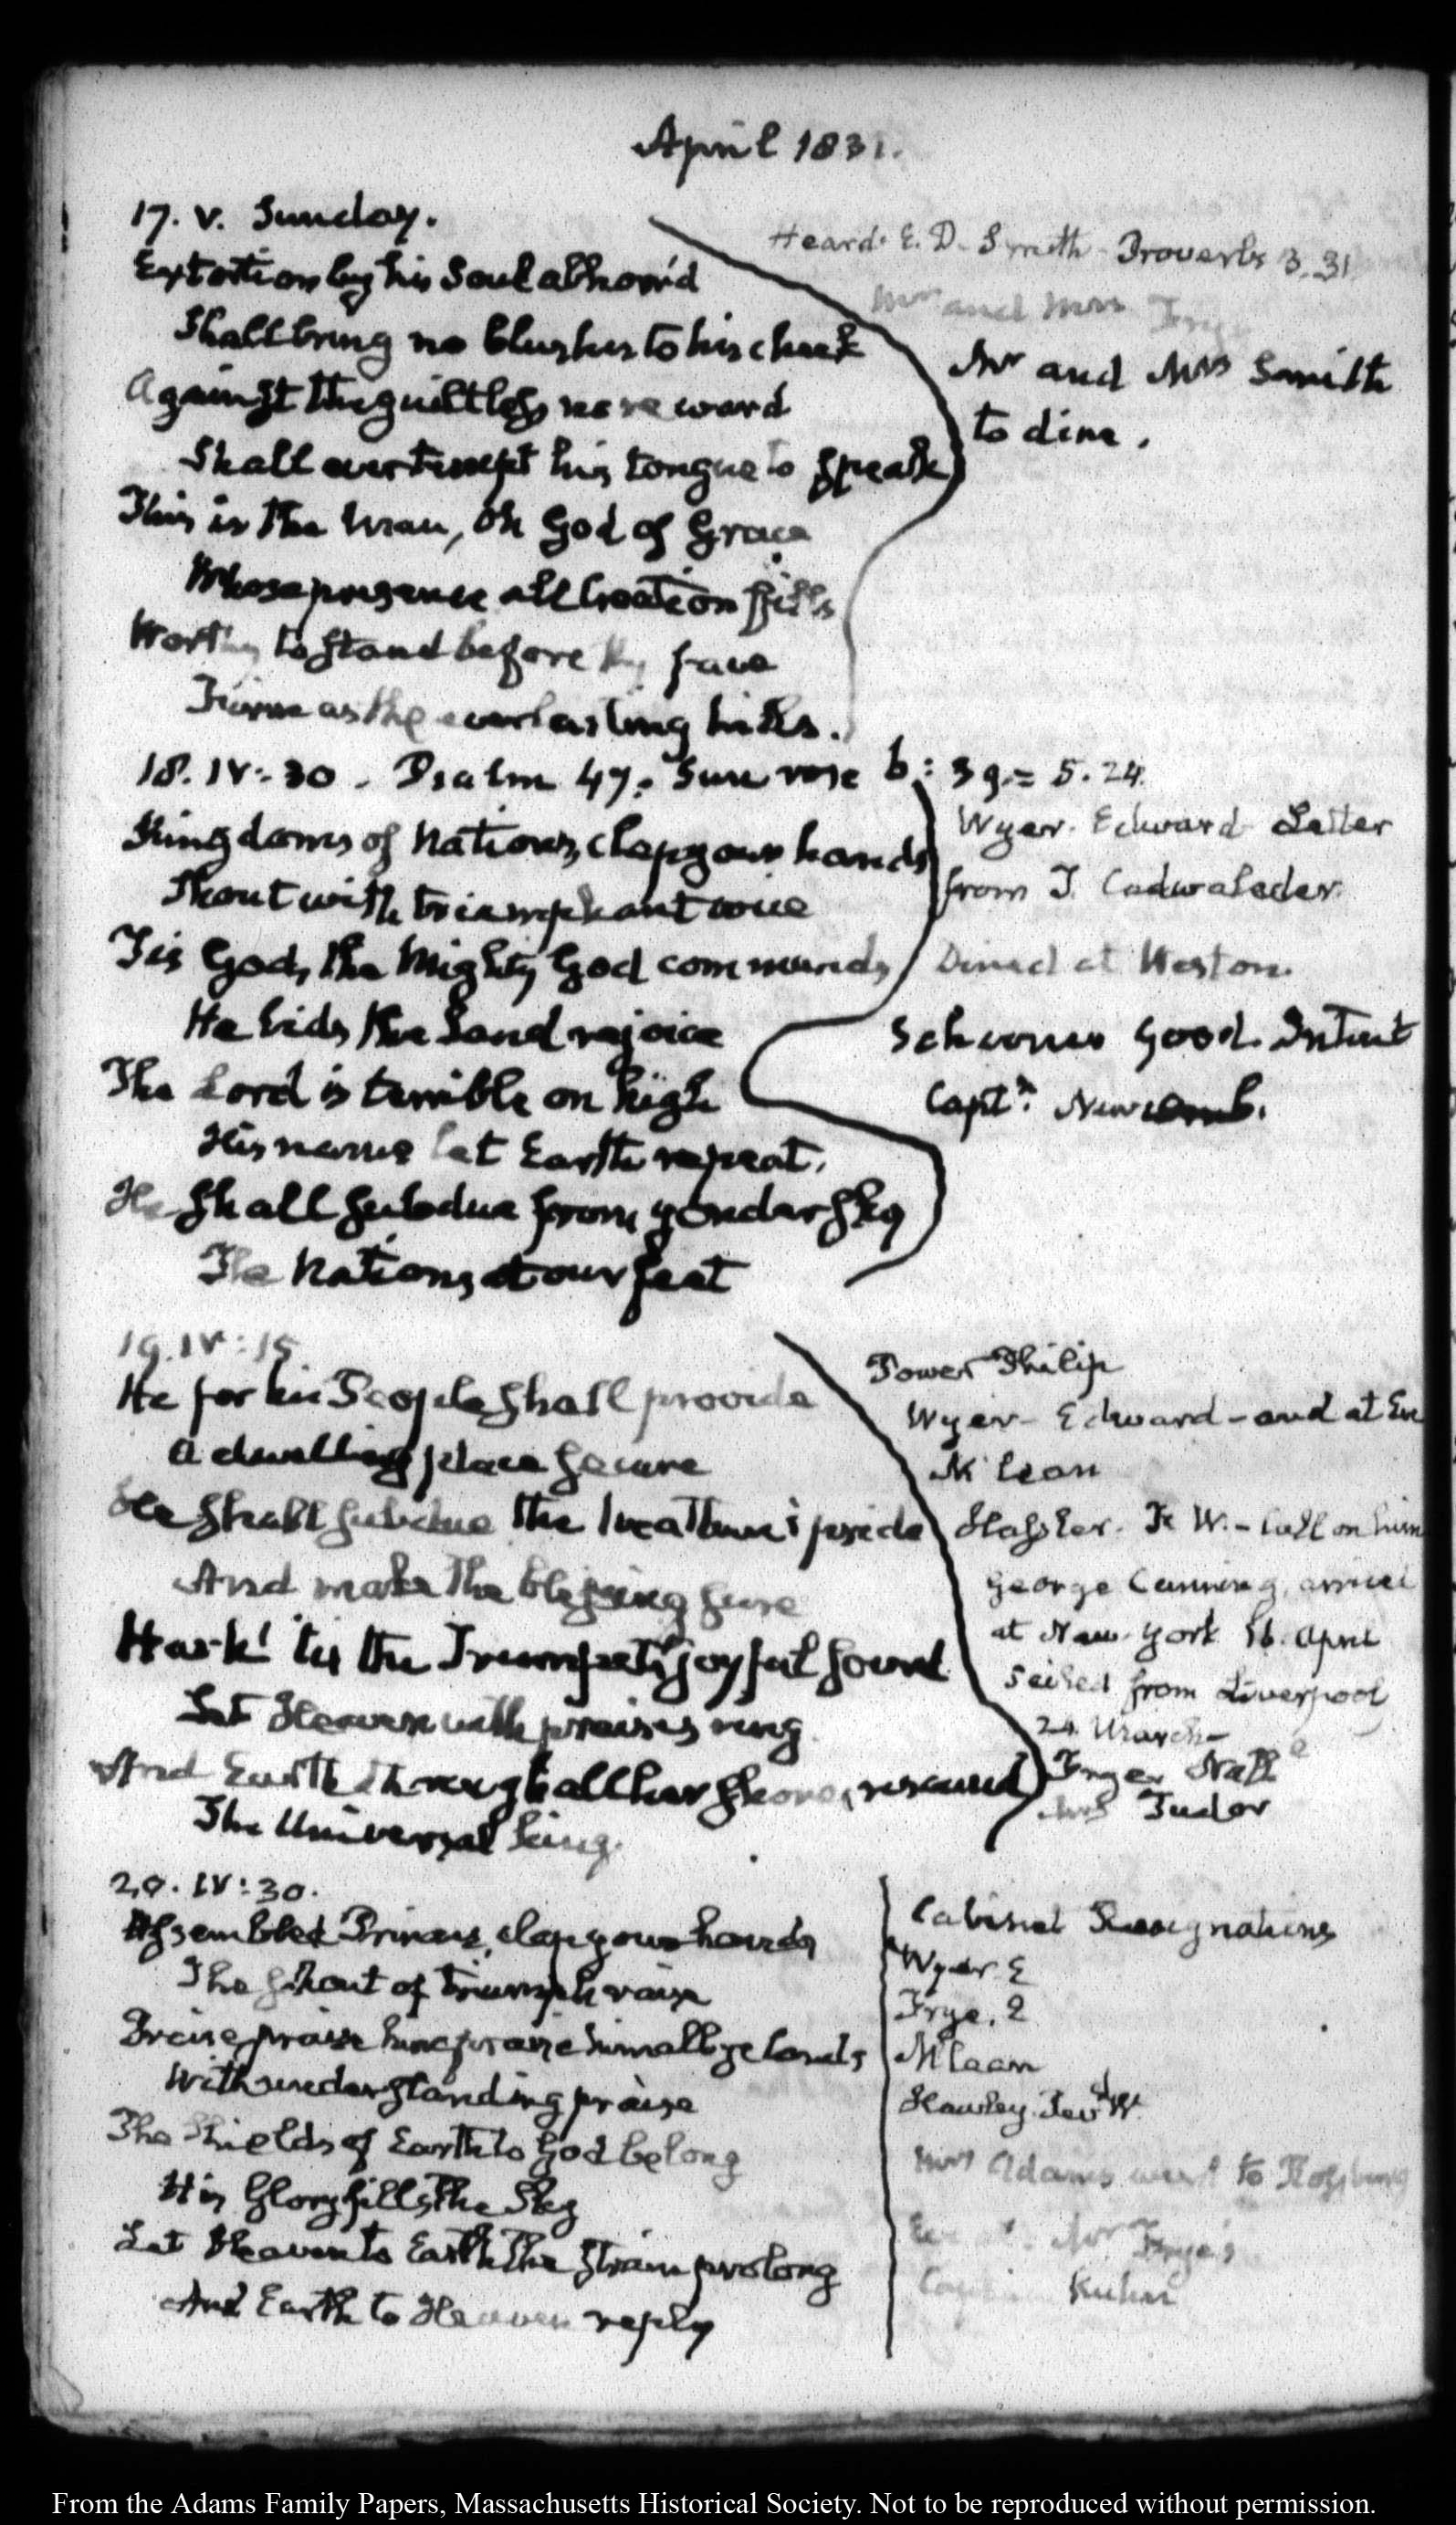 April 1831.
17. V. Sunday.
Extortion by his Soul abhorr'd
Shall bring no blushes to his cheek
Against the guiltless no reward
Shall ever tempt his tongue to speak
This is the Man, Oh God of Grace
Whose presence all Creation fills
Worthy to stand before thy face
Firm as the everlasting hills.
Heard E. D. Smith Proverbs 3. 31
Mr and Mrs Frye
Mr and Mrs Smith
to dine.
18. IV:30. Psalm 47. Sun rose b: 39 = 5.24.
Kingdoms of Nations, clap your hands
Shout with triumphant voice
Tis God, the Mighty God commands
He bids the Land rejoice
The Lord is terrible on high
His name let Earth repeat.
He shall subdue from yonder sky
The Nations at our feet
Wyer. Edward Letter
from T. Cadwalader.
Dined at Weston.
Schooner Good Intent
Captn. Newcomb.
19. IV:15
He for his People shall provide
A dwelling place secure
He shall subdue the heathen's pride
And make the blessing sure
Hark! tis the Trumpet's joyful sound
Let Heaven with praises ring
And Earth through all her shores, resound
The Universal King.
Tower Philip
Wyer Edward - and at Eve
McLean
Hassler. F. R. W. - call on him
George Canning, arrived
at New York 16. April
sailed from Liverpool
24 March-
Frye Nath
Mrs Tudor
20. IV:30.
Assembled Princes, clap your hands
The shout of triumph raise
Praise praise him praise him all ye lands
With understanding praise
The Shields of Earth to God belong
His Glory fills the Sky
Let Heaven to Earth the strain prolong
And Earth to Heaven reply
Cabinet Resignations
Wyer E
Frye. 2
McLean
Hawley. Revd W.
Mrs Adams went to Rossburg
Mr Frye's